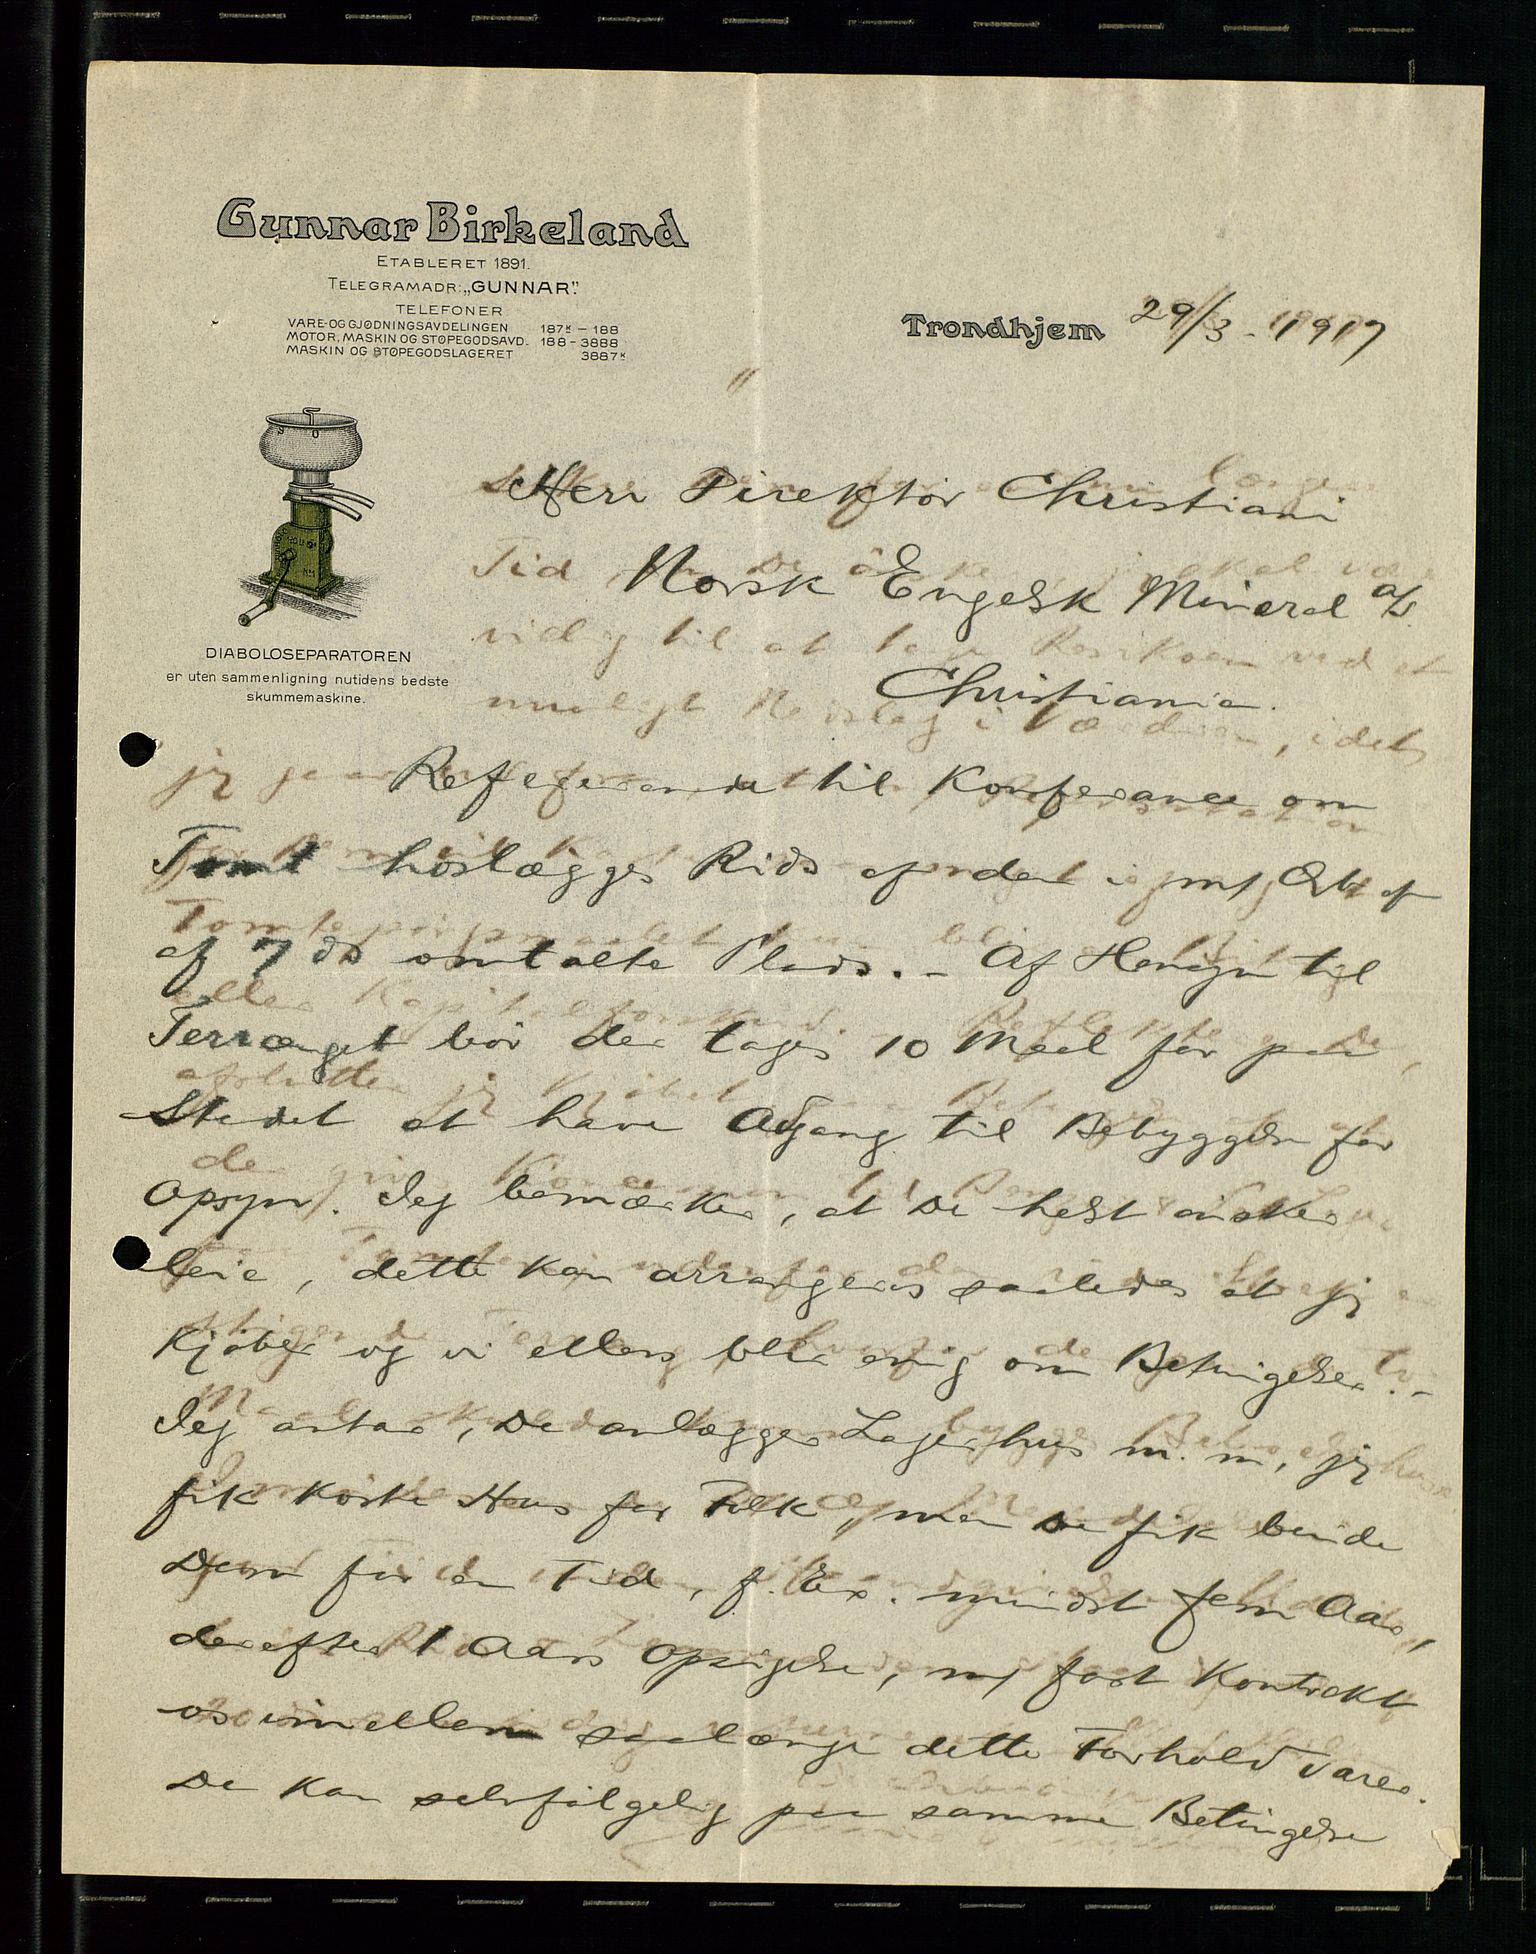 Gunnar Birkeland
ETABLERET 1891.
TELEGRAMADR: „GUNNAR".
TELEFONER
VARE- OG GJØDNINGSAVDELINGEN 187ˣ — 188
MOTOR, MASKIN OG STØPEGODSAVD. 188 - 3888
MASKIN OG STØPEGODSLAGERET 3887ˣ
Trondhjem 29/3 - 1917
DIABOLOSEPARATOREN
er uten sammenligning nutidens bedste
skummemaskine.
Herr Direktör Christiani
Norsk Engelsk Mineral A/S.
Christiania.
Refererende til Konferance om
Tomt hoslægges Rids af den i m/ af
af 7 ds omtalte Plads. - Af Hensyn til
Terrænget bör der tages 10 Maal for paa
Stedet at have Adgang til Bebyggelse for
Opsyn. Jeg bemærker, at De helst önsker
leie, dette kan arrangeres saaledes at jeg
Kjöber og vi ellers blir enig om Betingelser. -
Jeg antar, De anlægger Lagerhus m. m, jeg
fik koste Hus for Folk, men De fik binde
Dem for en Tid, f. Ex. mindst fem Aar,
derefter 1 Aars Opsigelse, m/ fast Kontrakt
os imellem saalænge dette Forhold varer.
De kan selvfölgelig paa samme Betingelse